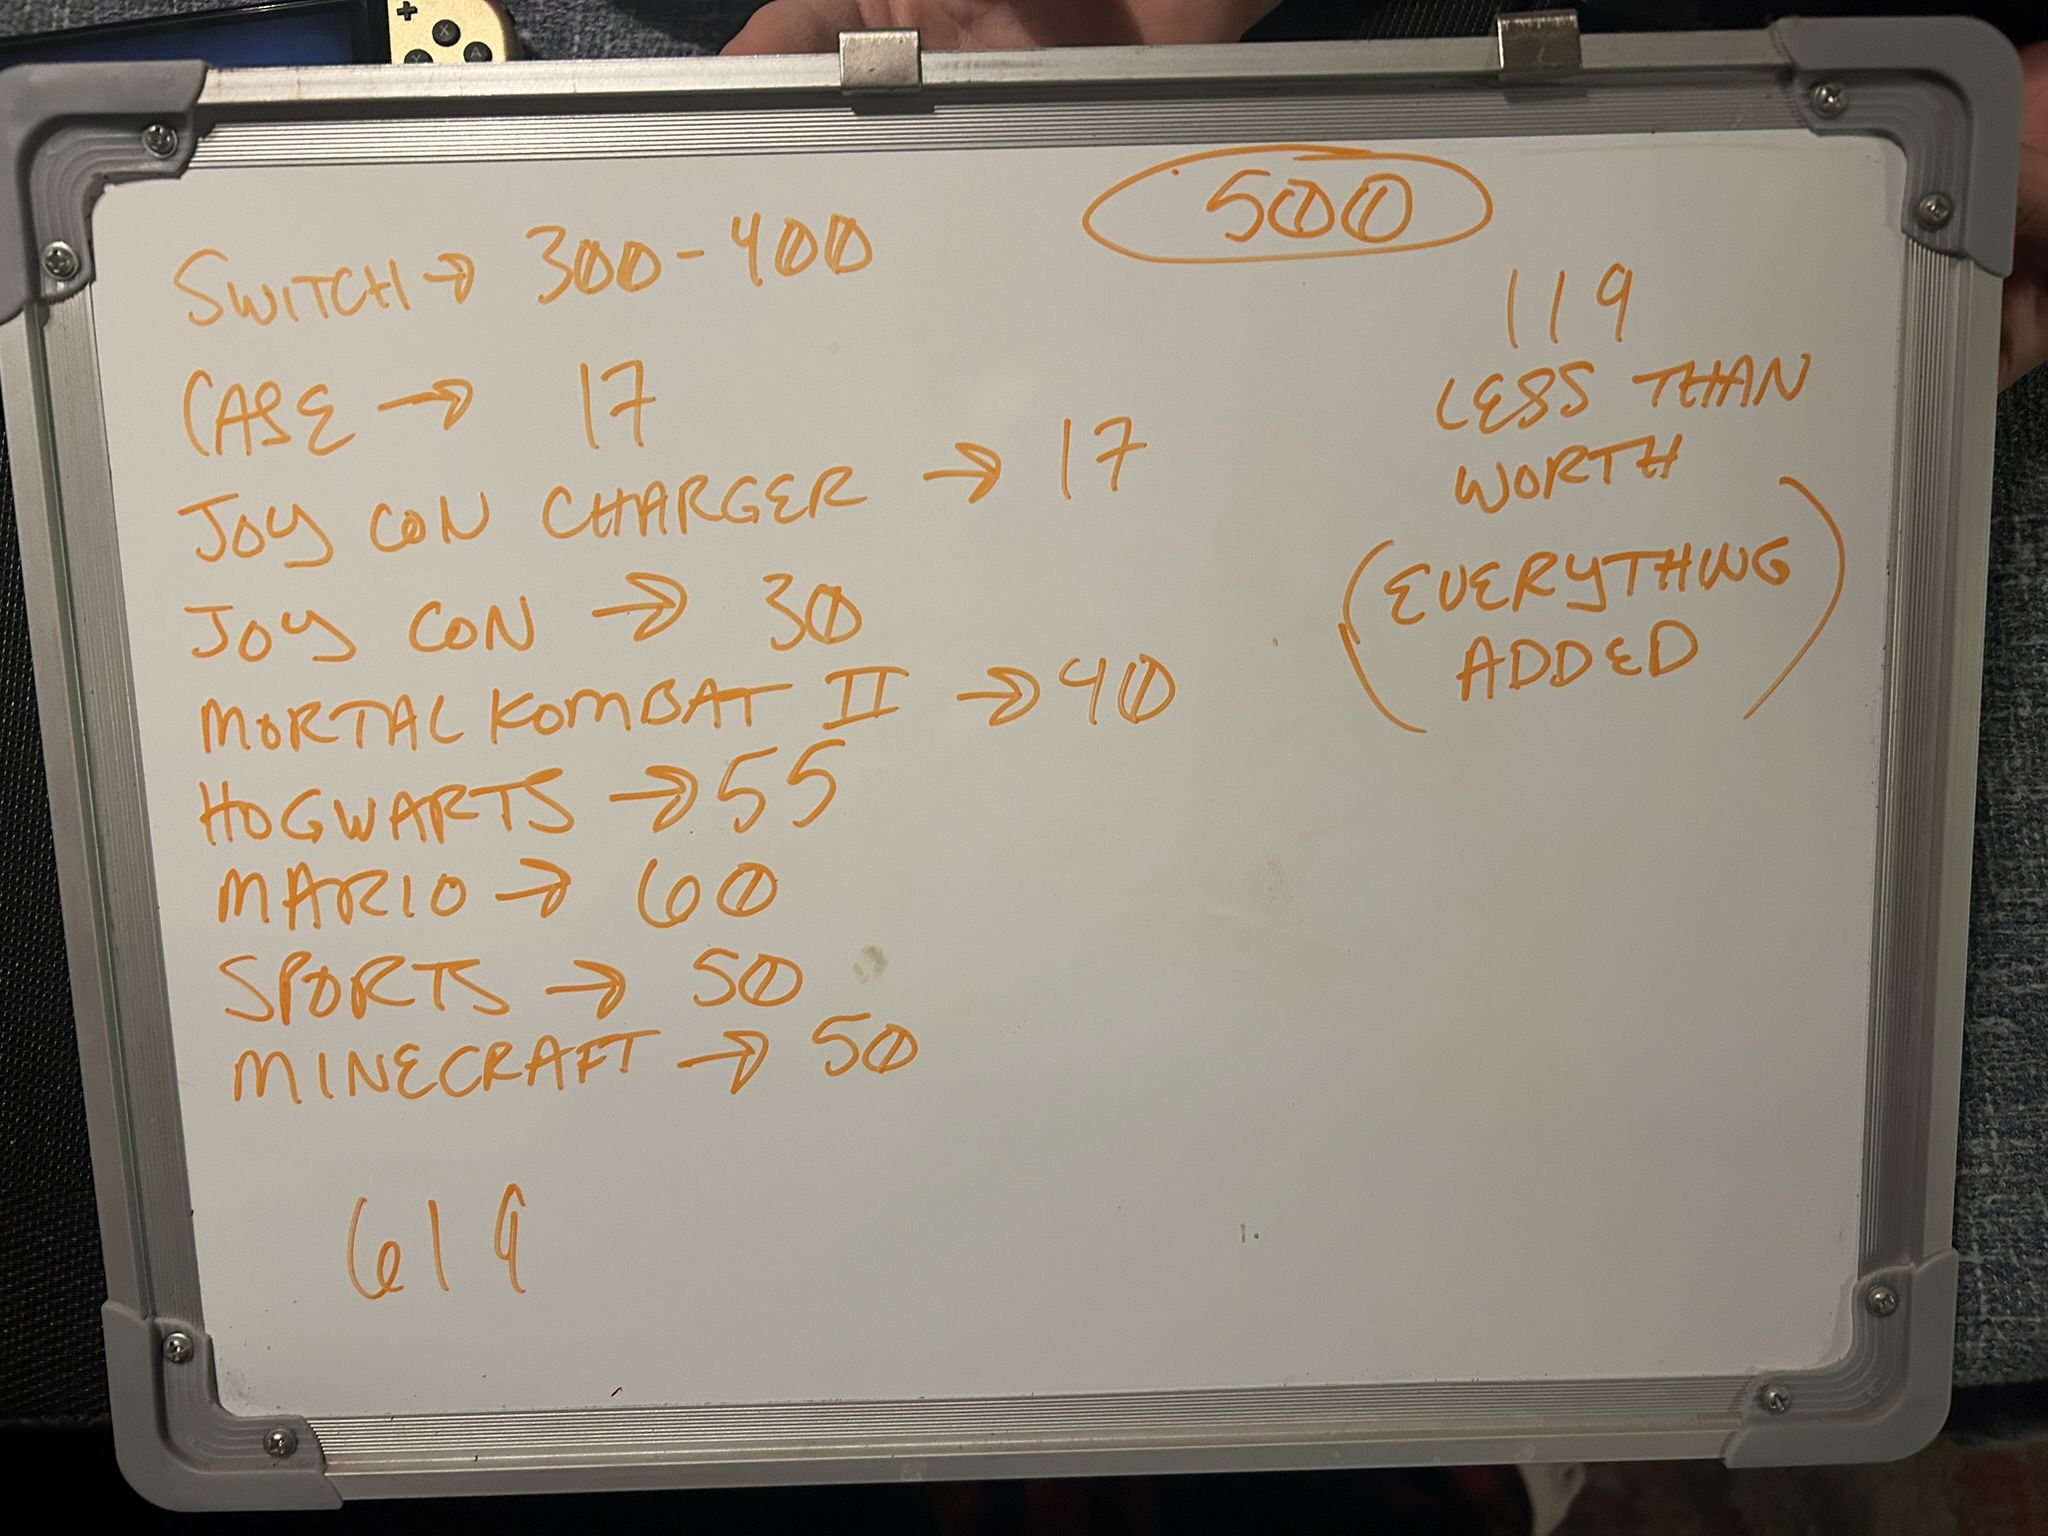 500
SWITCH → 300-400
CASE → 17
JOY CON CHARGER → 17
JOY CON → 30
MORTAL KOMBAT II → 40
HOGWARTS → 55
MARIO → 60
SPORTS → 50
MINECRAFT → 50
619
119
LESS THAN
WORTH
(EVERYTHING
ADDED)
+
X
Y
A